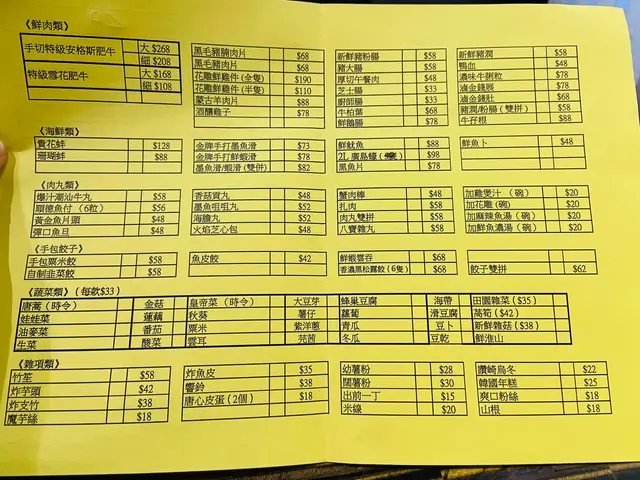 《鮮肉類》
手切特級安格斯肥牛 大 $268
細 $208
特級雪花肥牛 大 $168
細 $108
黑毛豬腩肉片 $68
黑毛豬肉片 $68
花雕鮮雞件(全隻) $190
花雕鮮雞件(半隻) $110
蒙古羊肉片 $88
酒釀雞子 $78
新鮮豬粉腸 $58
豬大腸 $58
厚切午餐肉 $48
芝士腸 $33
廚師腸 $33
牛柏葉 $68
鮮鵝腸 $78
新鮮豬潤 $58
鴨血 $48
濃味牛脷粒 $78
滷金錢展 $78
滷金錢肚 $68
豬潤/粉腸(雙拼) $58
牛孖根 $88
《海鮮類》
貴花蚌 $128
珊瑚蚌 $88
金牌手打墨魚滑 $73
金牌手打鮮蝦滑 $78
墨魚滑/蝦滑(雙併) $82
鮮魷魚 $88
2L 廣島蠔 $98
黑魚片 $78
鮮魚卜 $48
《肉丸類》
爆汁潮汕牛丸 $58
順德魚付(6粒) $56
黃金魚片頭 $48
彈口魚旦 $48
香菇貢丸 $48
墨魚咀咀丸 $52
海膽丸 $52
火焰芝心包 $48
蟹肉棒 $48
扎肉 $58
肉丸雙拼 $58
八寶雜丸 $58
加雞煲汁(碗) $20
加花雕(碗) $20
加麻辣魚湯(碗) $20
加鮮魚濃湯(碗) $20
《手包餃子》
手包粟米餃 $58
自制韭菜餃 $58
魚皮餃 $42
鮮蝦雲吞 $68
香濃黑松露餃(6隻) $68
餃子雙拼 $62
《蔬菜類》(每款$33)
唐蒿(時令) 金菇 皇帝菜(時令) 大豆芽 蜂巢豆腐 海帶 田園雜菜($35)
娃娃菜 蓮藕 秋葵 薯仔 蘿蔔 滑豆腐 萵筍($42)
油麥菜 番茄 粟米 紫洋蔥 青瓜 豆卜 新鮮雜菇($38)
生菜 酸菜 雲耳 芫茜 冬瓜 豆乾 鮮淮山
《雜項類》
竹笙 $58
炸芋頭 $42
炸支竹 $38
魔芋絲 $18
炸魚皮 $35
響鈴 $38
唐心皮蛋(2個) $18
幼薯粉 $28
闊薯粉 $30
出前一丁 $15
米線 $20
讚崎烏冬 $22
韓國年糕 $25
爽口粉絲 $18
山根 $18